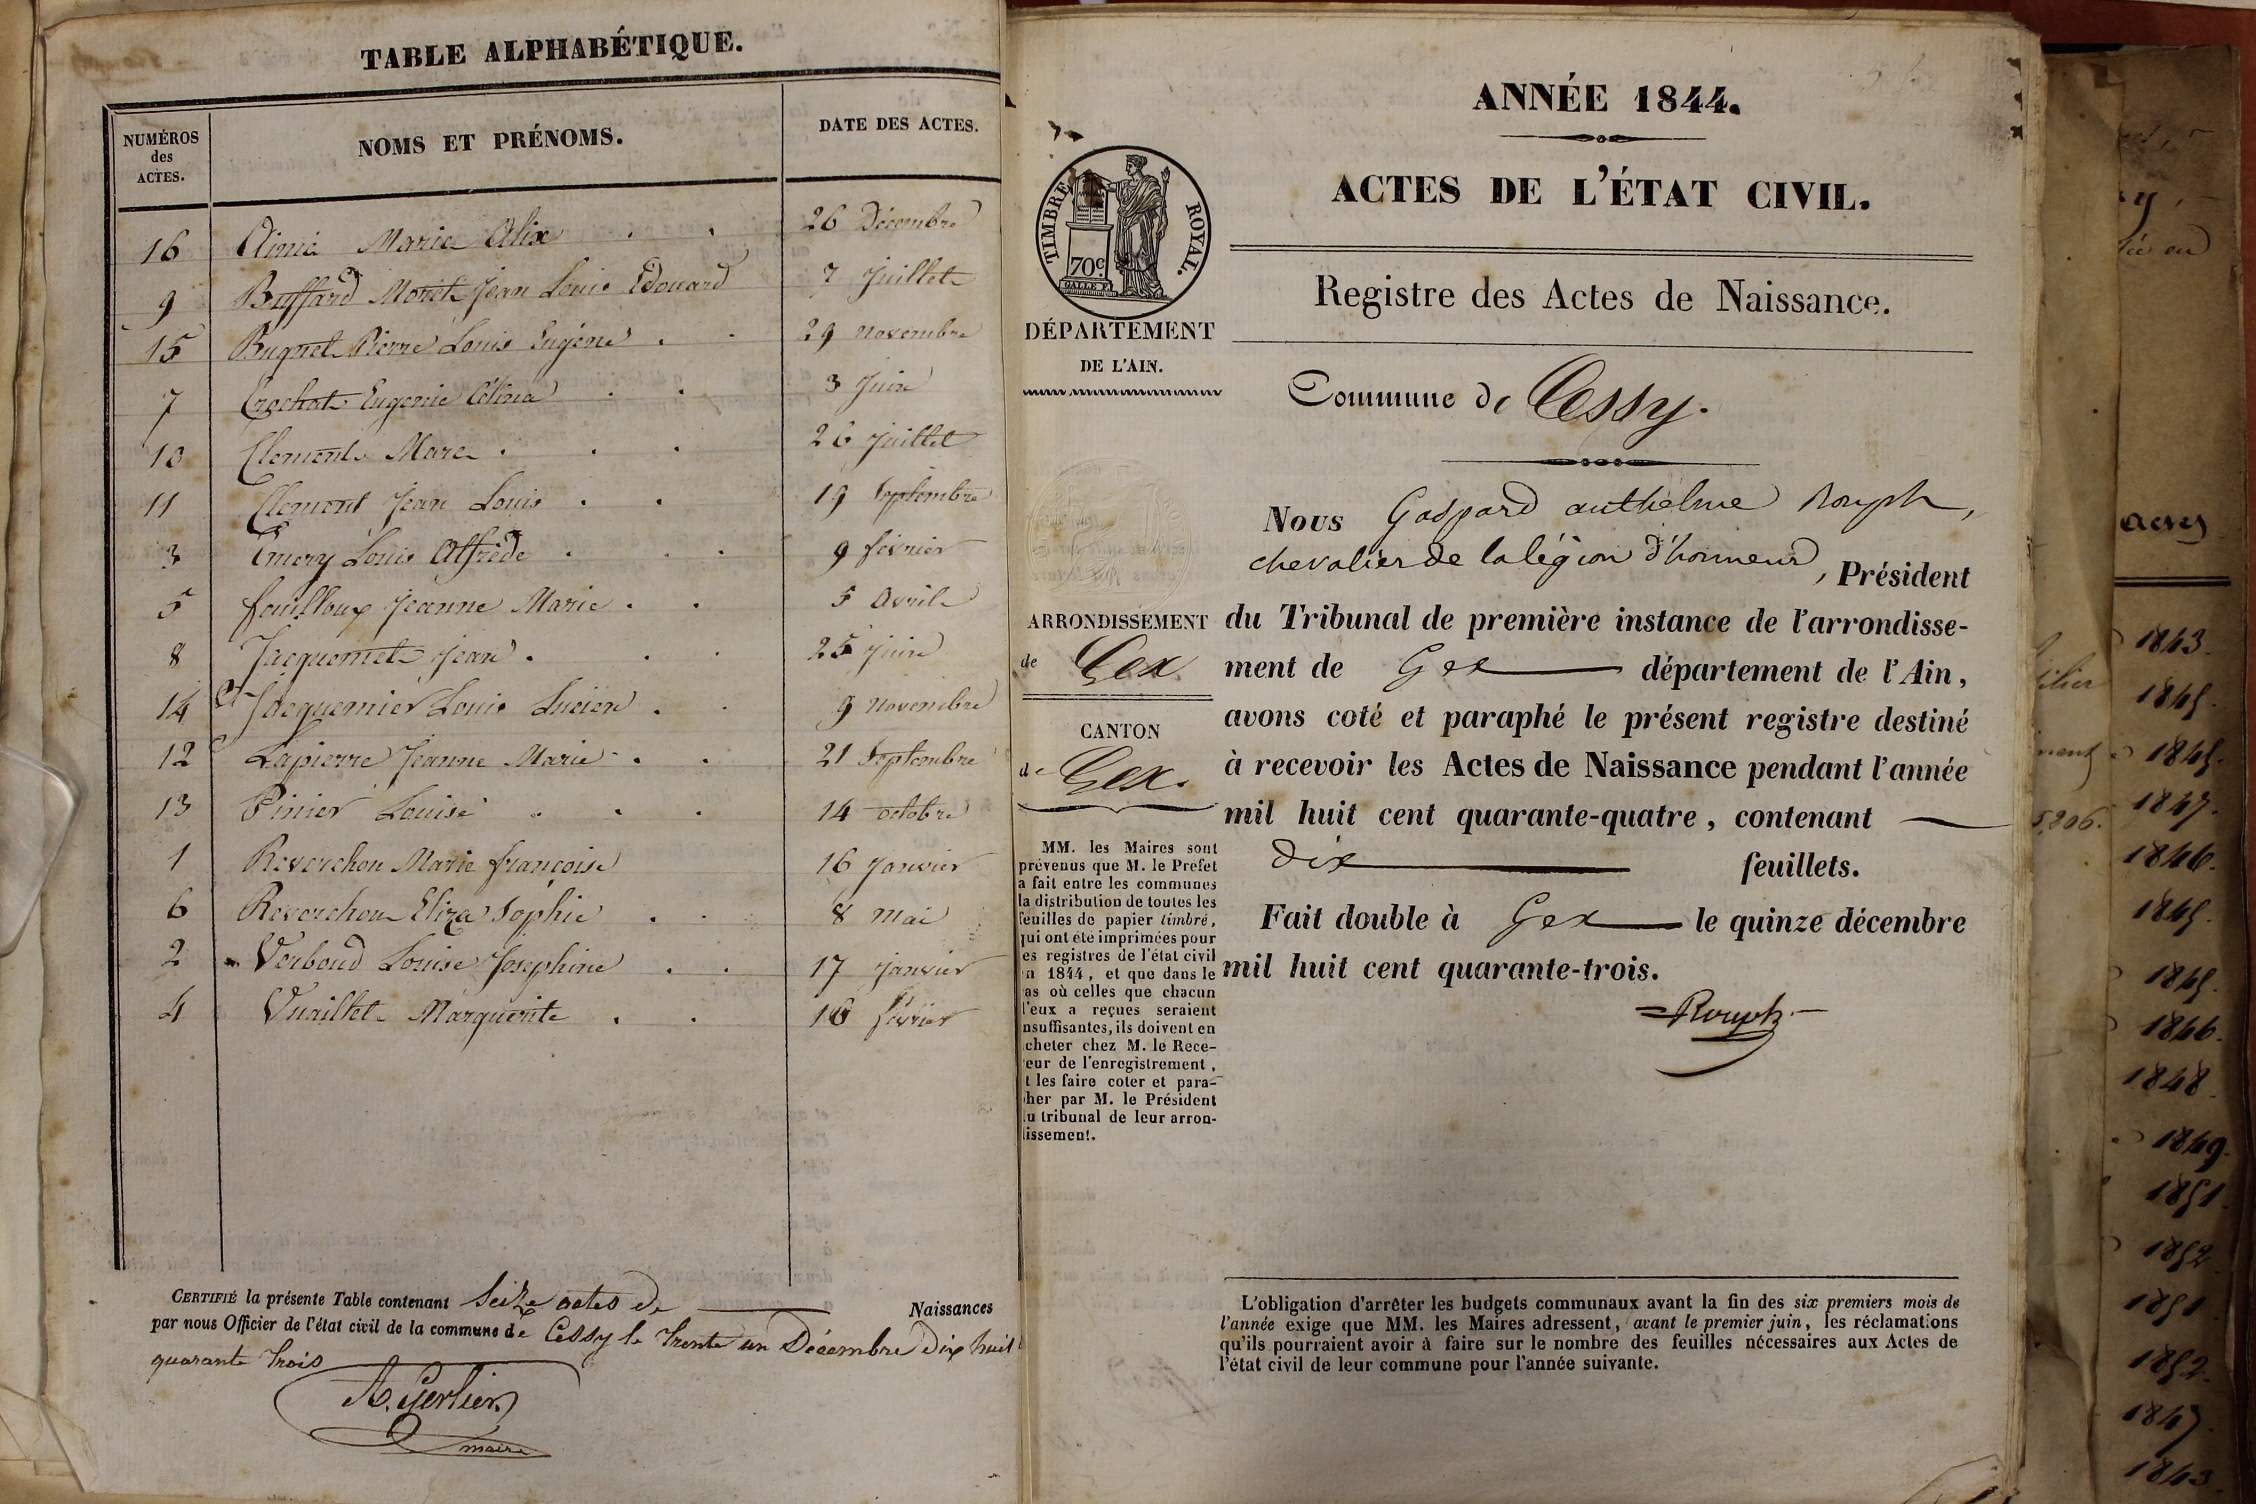 TABLE ALPHABÉTIQUE.
NUMÉROS des ACTES. NOMS ET PRÉNOMS. DATE DES ACTES.
16 Marie Alix 26 Décembre
9 Buffard Moret Jean Louis Edouard 7 Juillet
15 Bugnet Pierre Louis Eugène 29 Novembre
7 Crochat Eugenie Célina 3 Juin
10 Clement Marc 26 Juillet
11 Clement Jean Louis 19 Septembre
3 Emery Louis Alfrède 9 février
5 fouilloux Jeanne Marie 5 Avril
8 Jacquemet Jean 25 Juin
14 Jacquemier Louis Lucien 9 Novembre
12 Lapierre Jeanne Marie 21 Septembre
13 Pinier Louise 14 octobre
1 Reverchon Marie françoise 16 Janvier
6 Reverchon Eliza Sophie 8 Mai
2 Louise Josephine 17 Janvier
4 Vuaillet Marguerite 16 février
CERTIFIÉ la présente Table contenant Seize actes de Naissances
par nous Officier de l'état civil de la commune de Cessy le trente un Décembre dix huit
quarante trois
A. Gerlier
maire
ANNÉE 1844.
ACTES DE L'ÉTAT CIVIL.
Registre des Actes de Naissance.
Commune de Cessy.
TIMBRE ROYAL.
70c.
DÉPARTEMENT
DE L'AIN.
ARRONDISSEMENT
de Gex
CANTON
de Gex.
MM. les Maires sont
prévenus que M. le Préfet
a fait entre les communes
la distribution de toutes les
feuilles de papier timbré,
qui ont été imprimées pour
es registres de l'état civil
n 1844, et que dans le
as où celles que chacun
l'eux a reçues seraient
nsuffisantes, ils doivent en
cheter chez M. le Rece-
eur de l'enregistrement,
t les faire coter et para-
her par M. le Président
u tribunal de leur arron-
issement.
Nous Gaspard anthelme Rouph,
chevalier de la légion d'honneur, Président
du Tribunal de première instance de l'arrondisse-
ment de Gex département de l'Ain,
avons coté et paraphé le présent registre destiné
à recevoir les Actes de Naissance pendant l'année
mil huit cent quarante-quatre, contenant
dix feuillets.
Fait double à Gex le quinze décembre
mil huit cent quarante-trois.
Rouph
L'obligation d'arrêter les budgets communaux avant la fin des six premiers mois de
l'année exige que MM. les Maires adressent, avant le premier juin, les réclamations
qu'ils pourraient avoir à faire sur le nombre des feuilles nécessaires aux Actes de
l'état civil de leur commune pour l'année suivante.
actes
1843.
1845.
1845.
1847.
1846.
1845.
1845.
1846.
1848.
1849.
1851.
1852
1851.
1852.
1847.
1843.